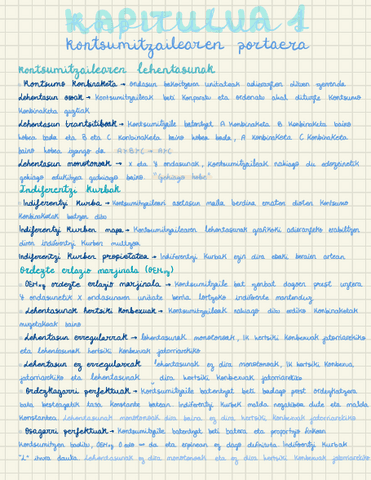 KAPITULUA 1
Kontsumitzailearen portaera
Kontsumitzailearen lehentasunak
· Kontsumo Konbinaketa → ondasun bakoitzaren unitateak adierazten dituen zerrenda
Lehentasun osoak → Kontsumitzaileak beti konparatu eta ordenatu ahal dituzte Kontsumo
Konbinaketa guztiak
Lehentasun trantsitiboak → Kontsumitzaile batentzat A Konbinaketa B Konbinaketa baino
hobea bada eta B eta C Konbinaketa baino hobea bada, A Konbinaketa C Konbinaketa
baino hobea izango da. A>B>C → A>C
Lehentasun monotonoak → X eta Y ondasunak, Kontsumitzaileak nahiago du edozeinetik
gehiago edukitzea gutxiago baino. "Gehiago hobe"
Indiferentzi Kurbak
· Indiferentzi Kurba → Kontsumitzaileari asetasun maila berdina ematen dioten Kontsumo
Konbinaketak batzen ditu
Indiferentzi Kurben mapa → Kontsumitzailearen lehentasunak grafikoki adierazteko erabiltzen
diren indiferentzi Kurben multzoa
Indiferentzi Kurben propietatea → Indiferentzi Kurbak ezin dira ebaki beraien artean
Ordezte erlazio marjinala (OEM
· OEM ordezte erlazio marjinala → Kontsumitzaile bat zenbat dagoen prest uzteko
Y ondasunetik X ondasunaren unitate bat lortzeko indiferente mantenduz
· Lehentasunak hertsiki Konbexuak → Kontsumitzaileak nahiago ditu erdiko Konbinaketak
muturrekoak baino
· Lehentasun erregularrak → lehentasunak monotonoak, IK hertsiki Konbexuak jatorriarekiko
eta lehentasunak hertsiki Konbexuak jatorriarekiko
· Lehentasun ez erregularrak → lehentasunak ez dira monotonoak, IK hertsiki Konbexuak,
jatorriarekiko eta lehentasunak dira hertsiki Konbexuak jatorriarekiko
· Ordezkagarri perfektuak → Kontsumitzaile batentzat beti badago prest ordezkatzera
bata besteargatik tasa Konstante batean indiferentzi Kurbek malda negatiboa dute eta malda
Konstantea Lehentasunak monotonoak dira baina ez dira hertsiki Konbexuak jatorriarekiko
· Osagarri perfektuak → Kontsumitzaile batentzat beti batera eta proportzio finkoan
Kontsumitzen baditu, OEM 0 edo ∞ da eta erpinean ez dago definituta Indiferentzi Kurbak
"L" itxura daukate Lehentasunak ez dira monotonoak eta ez dira hertsiki Konbexuak jatorriarekiko